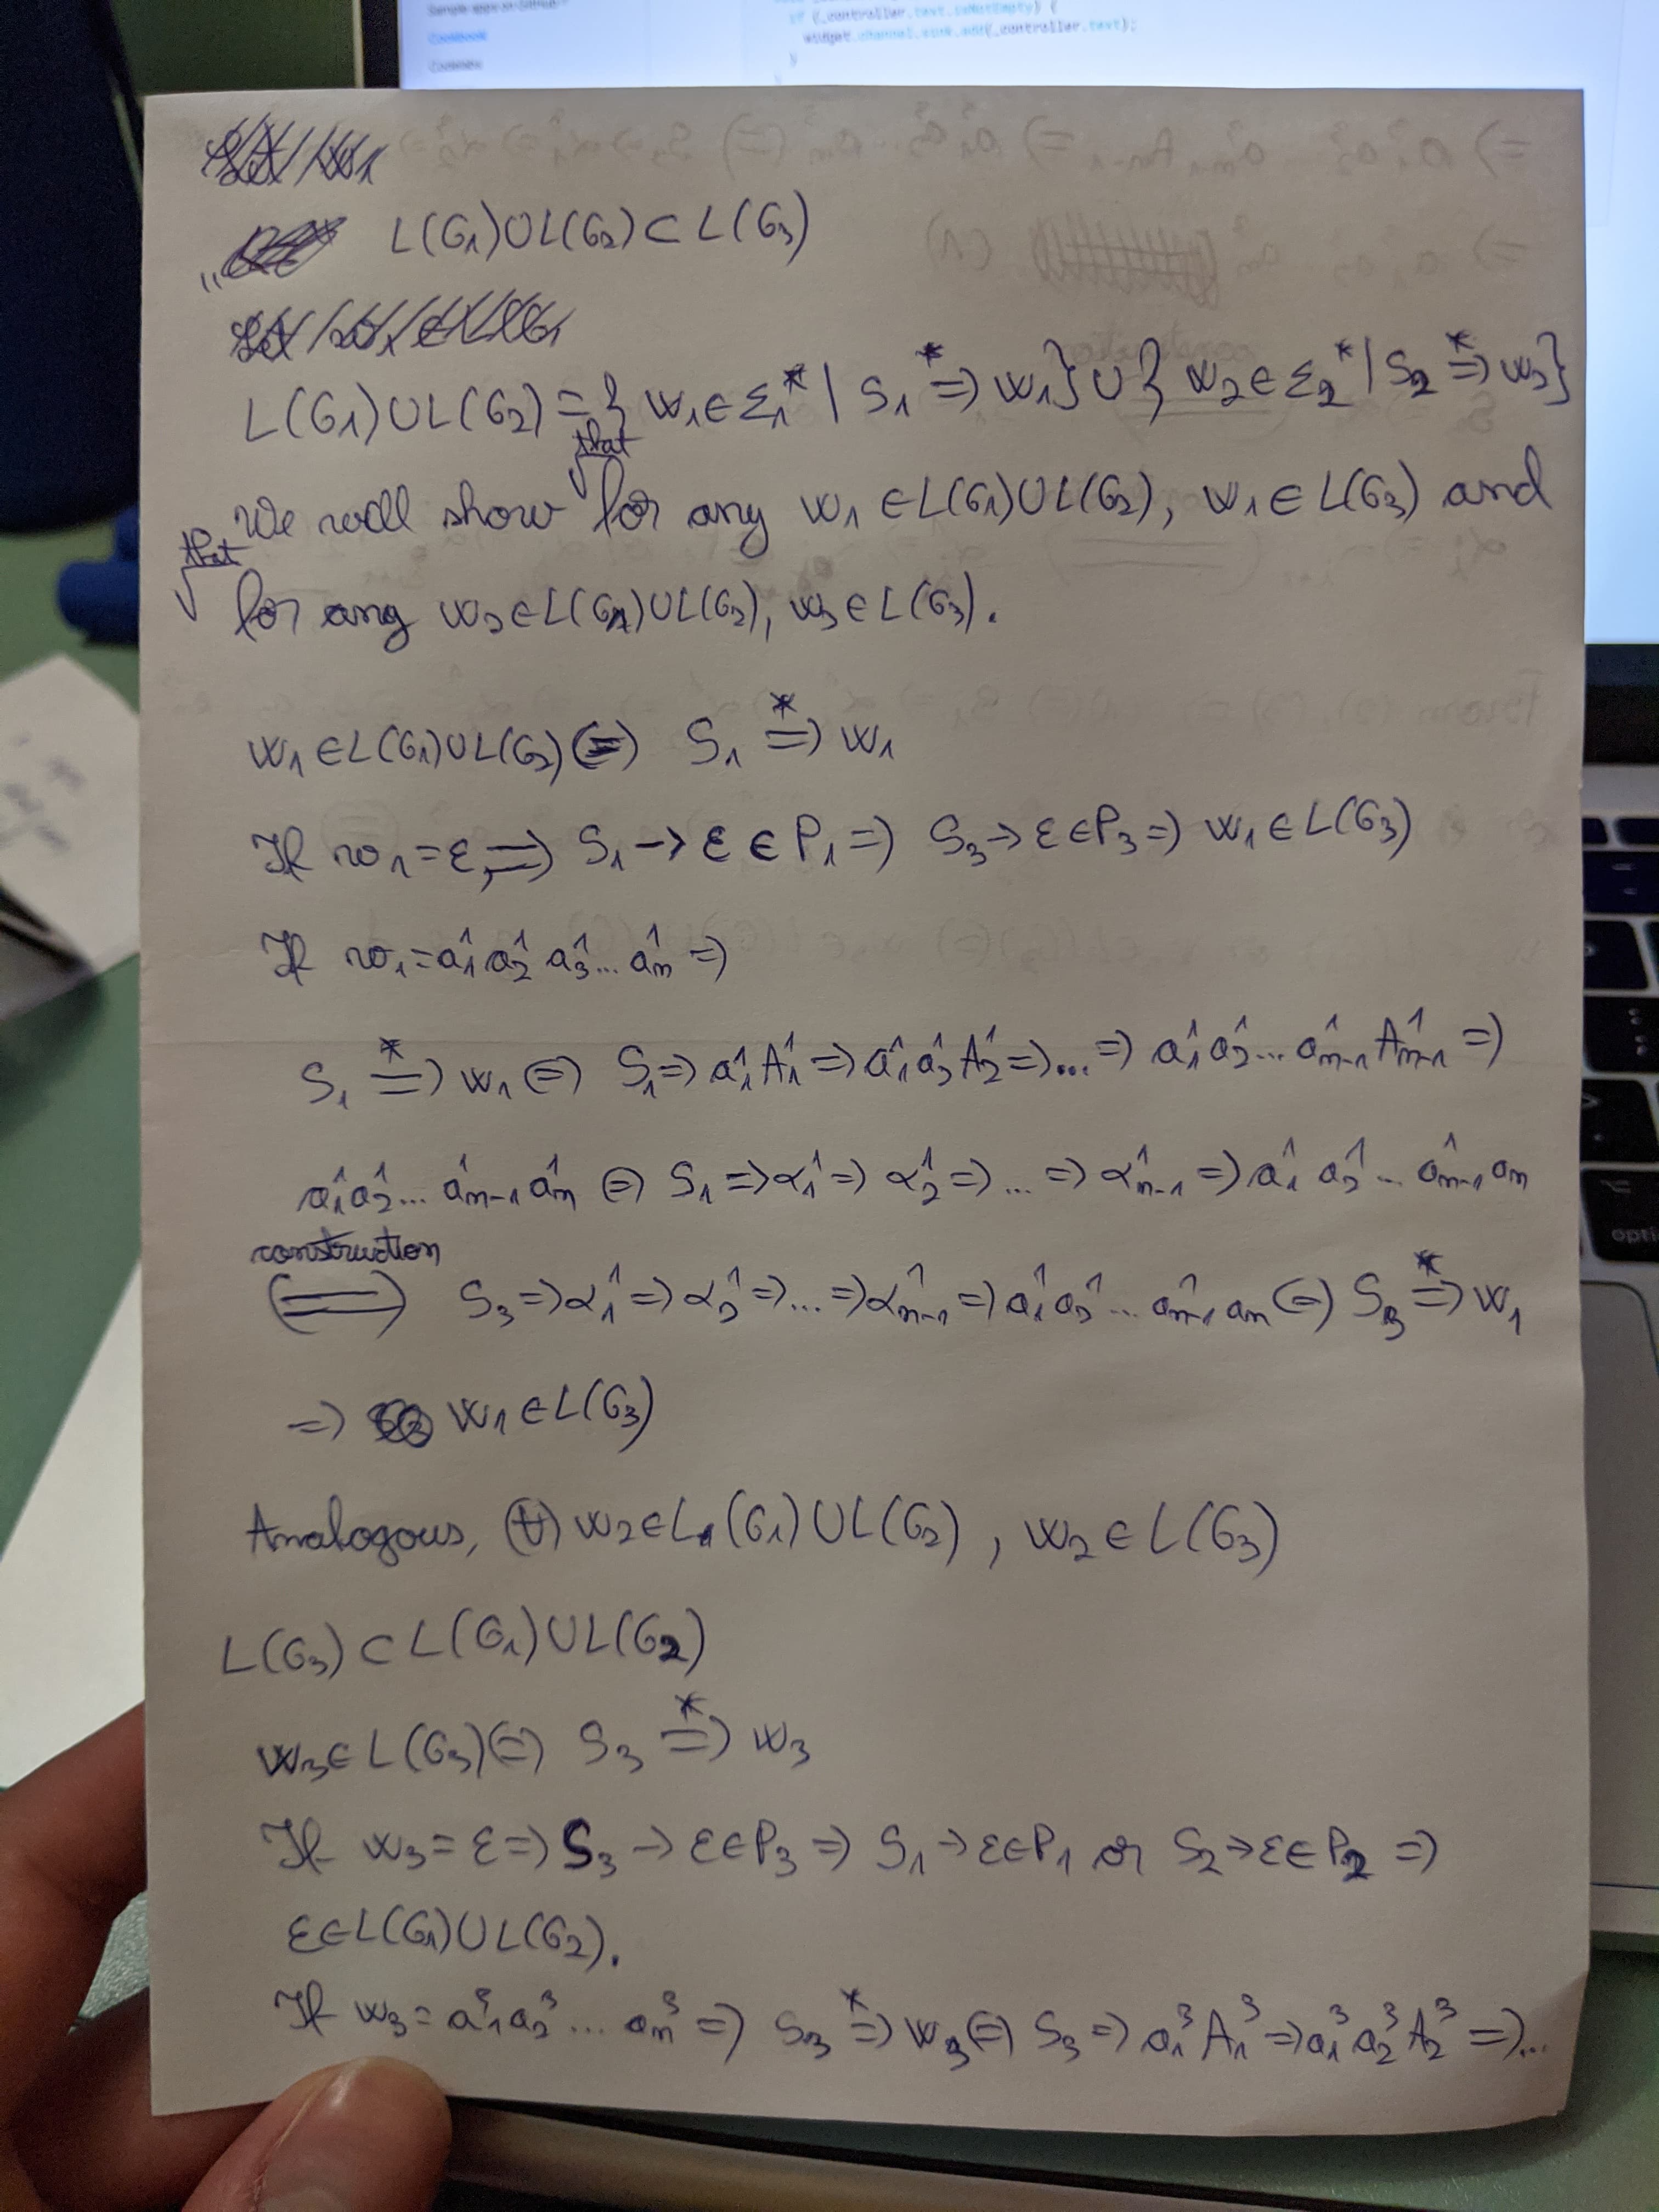 Sample apps on GitHub
Cookbook
Codelabs
if (_controller.text.isNotEmpty) {
widget.channel.sink.add(_controller.text);
}
" L(G₁)∪L(G₂)⊂L(G₃)
L(G₁)∪L(G₂)={ w₁∈Σ₁* | S₁ *=> w₁}∪{ w₂∈Σ₂* | S₂ *=> w₂}
We will show that for any w₁∈L(G₁)∪L(G₂), w₁∈L(G₃) and
that for any w₂∈L(G₁)∪L(G₂), w₂∈L(G₃).
w₁∈L(G₁)∪L(G₂) <=> S₁ *=> w₁
If w₁=ε, => S₁→ε∈P₁ => S₃→ε∈P₃ => w₁∈L(G₃)
If w₁=a₁¹a₂¹a₃¹...aₙ¹ =>
S₁ *=> w₁ <=> S₁=>a₁¹A₁¹=>a₁¹a₂¹A₂¹=>...=>a₁¹a₂¹...aₙ₋₁¹Aₙ₋₁¹=>
a₁¹a₂¹...aₙ₋₁¹aₙ¹ <=> S₁=>α₁¹=>α₂¹=>...=>αₙ₋₁¹=>a₁¹a₂¹...aₙ₋₁¹aₙ
construction
<=> S₃=>α₁¹=>α₂¹=>...=>αₙ₋₁¹=>a₁¹a₂¹...aₙ₋₁¹aₙ <=> S₃ *=> w₁
=> w₁∈L(G₃)
Analogous, (∀) w₂∈L(G₁)∪L(G₂), w₂∈L(G₃)
L(G₃)⊂L(G₁)∪L(G₂)
w₃∈L(G₃) <=> S₃ *=> w₃
If w₃=ε=> S₃→ε∈P₃ => S₁→ε∈P₁ or S₂→ε∈P₂ =>
ε∈L(G₁)∪L(G₂).
If w₃=a₁³a₂³...aₙ³ => S₃ *=> w₃ <=> S₃=>a₁³A₁³=>a₁³a₂³A₂³=>...
opti